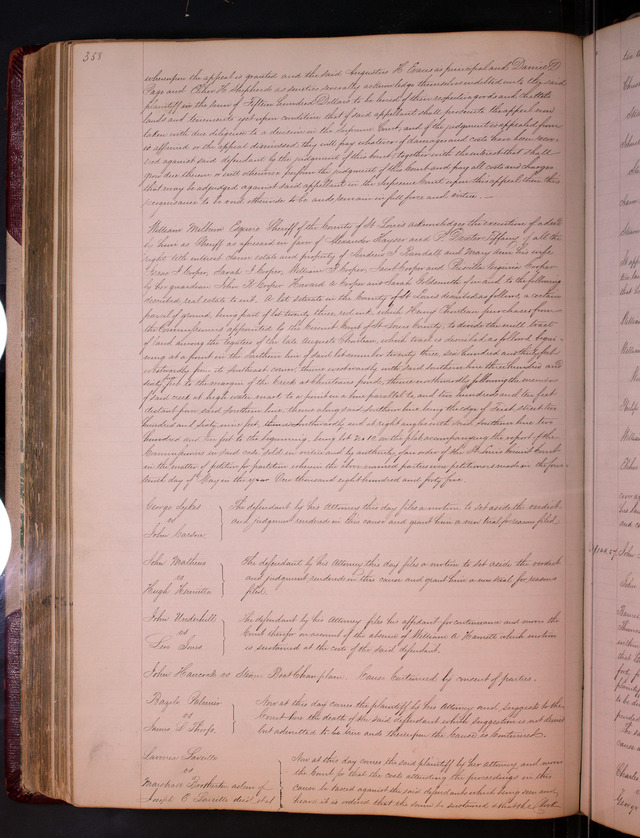 358
whereupon the appeal is granted and the said Augustus H. Evans as principal and Daniel D
Page and Oliver H Shepherd as sureties severally acknowledge themselves indebted unto the said
plaintiff in the sum of Fifteen hundred Dollars to be levied of their respective goods and chattels
lands and tenements yet upon condition that if said appellant shall prosecute the appeal now
taken with due diligence to a decision in the Supreme Court, and if the judgment appealed from
is affirmed or the appeal dismissed they will pay whatever of damages and costs have been recov
ered against said defendant by the judgment of this Court together with the interest that shall
grow due thereon or will otherwise perform the judgment of this Court and pay all costs and charges
that may be adjudged against said appellant in the Supreme Court upon this appeal then this
recognizance to be void otherwise to be and remain in full force and virtue.—
William Milburn Esquire Sheriff of the County of St Louis acknowledges the execution of a deed
by him as Sheriff as aforesaid in favor of Alexander Kayser and P. Dexter Tiffany of all the
right title interest claim estate and property of Randall and Mary Ann his wife
Sarah J Cooper, William Cooper, Cooper and Virginia Cooper
by her guardian John Cooper Howard Cooper and Sarah Goldsmith of in and to the following
described real estate to wit. A lot situate in the County of St Louis described as follows, a certain
parcel of ground, being part of lot twenty three, which Henry Chouteau purchased from
the Commissioners appointed by the Circuit Court of St Louis County, to divide the mill tract
of land among the legatees of the late Auguste Chouteau, which tract is described as follows begin
ning at a point in the Southern line of said lot number twenty three, six hundred and thirty feet
westwardly from its southeast corner, thence westwardly with said southern line three hundred and
sixty feet to the margin of the Creek at Chouteaus pond, thence northwardly following the meanders
of said creek at high water mark to a point in a line parallel to, and two hundred and ten feet
distant from said Southern line, thence along said southern line being the edge of street two
hundred and sixty nine feet, thence southwardly and at right angles with said southern line two
hundred and ten feet to the beginning, being lot 2 & 10 on the plat accompanying the report of the
Commissioners in said case. Sold in virtue and by authority of an order of the St Louis Circuit Court
in the matter of petition for partition wherein the above named parties were petitioners made on the four
teenth day of May in the year One thousand eight hundred and forty five.
George Sykes
vs
John Carson
The defendant by his Attorney this day files a motion to set aside the verdict
and judgment rendered in this cause and grant him a new trial for reasons filed.
John Mathews
vs
Hugh Hamilton
The defendant by his Attorney this day files a motion to set aside the verdict
and judgment rendered in this cause and grant him a new trial for reasons
filed.
John Underhill
vs
Levi Jones
The defendant by his Attorney files his affidavit for continuance and moves the
Court therefor on account of the absence of William A which motion
is sustained at the costs of the said defendant.
John Hancock vs Steam Boat Champlain. Cause Continued by consent of parties.
Bazile Palmier
vs
James L Thorp
Now at this day comes the plaintiff by his Attorney and suggests to the
Court here the death of the said defendant which suggestion is not denied
but admitted to be true and thereupon the cause is Continued.
Laveille
vs
Marshall Brotherton admr of
Joseph C Laveille decd et al
Now at this day comes the said plaintiff by her attorney and moves
the Court for that the costs attending the proceedings in this
cause be taxed against the said defendants which being seen and
heard it is ordered that the same be sustained